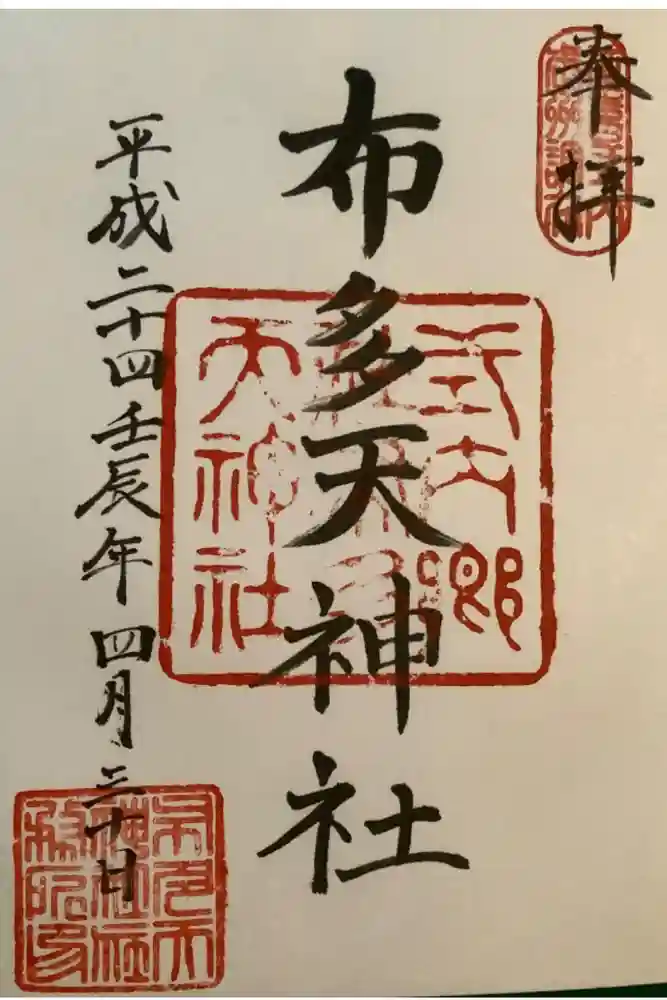 奉拝
布多天神社
平成二十四壬辰年四月三十日
式内郷社布多天神社